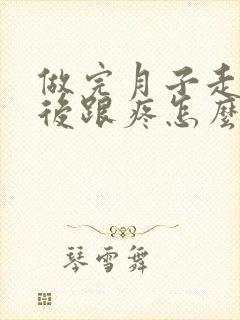 做完月子走
後跟疼怎麼
琴雪舞